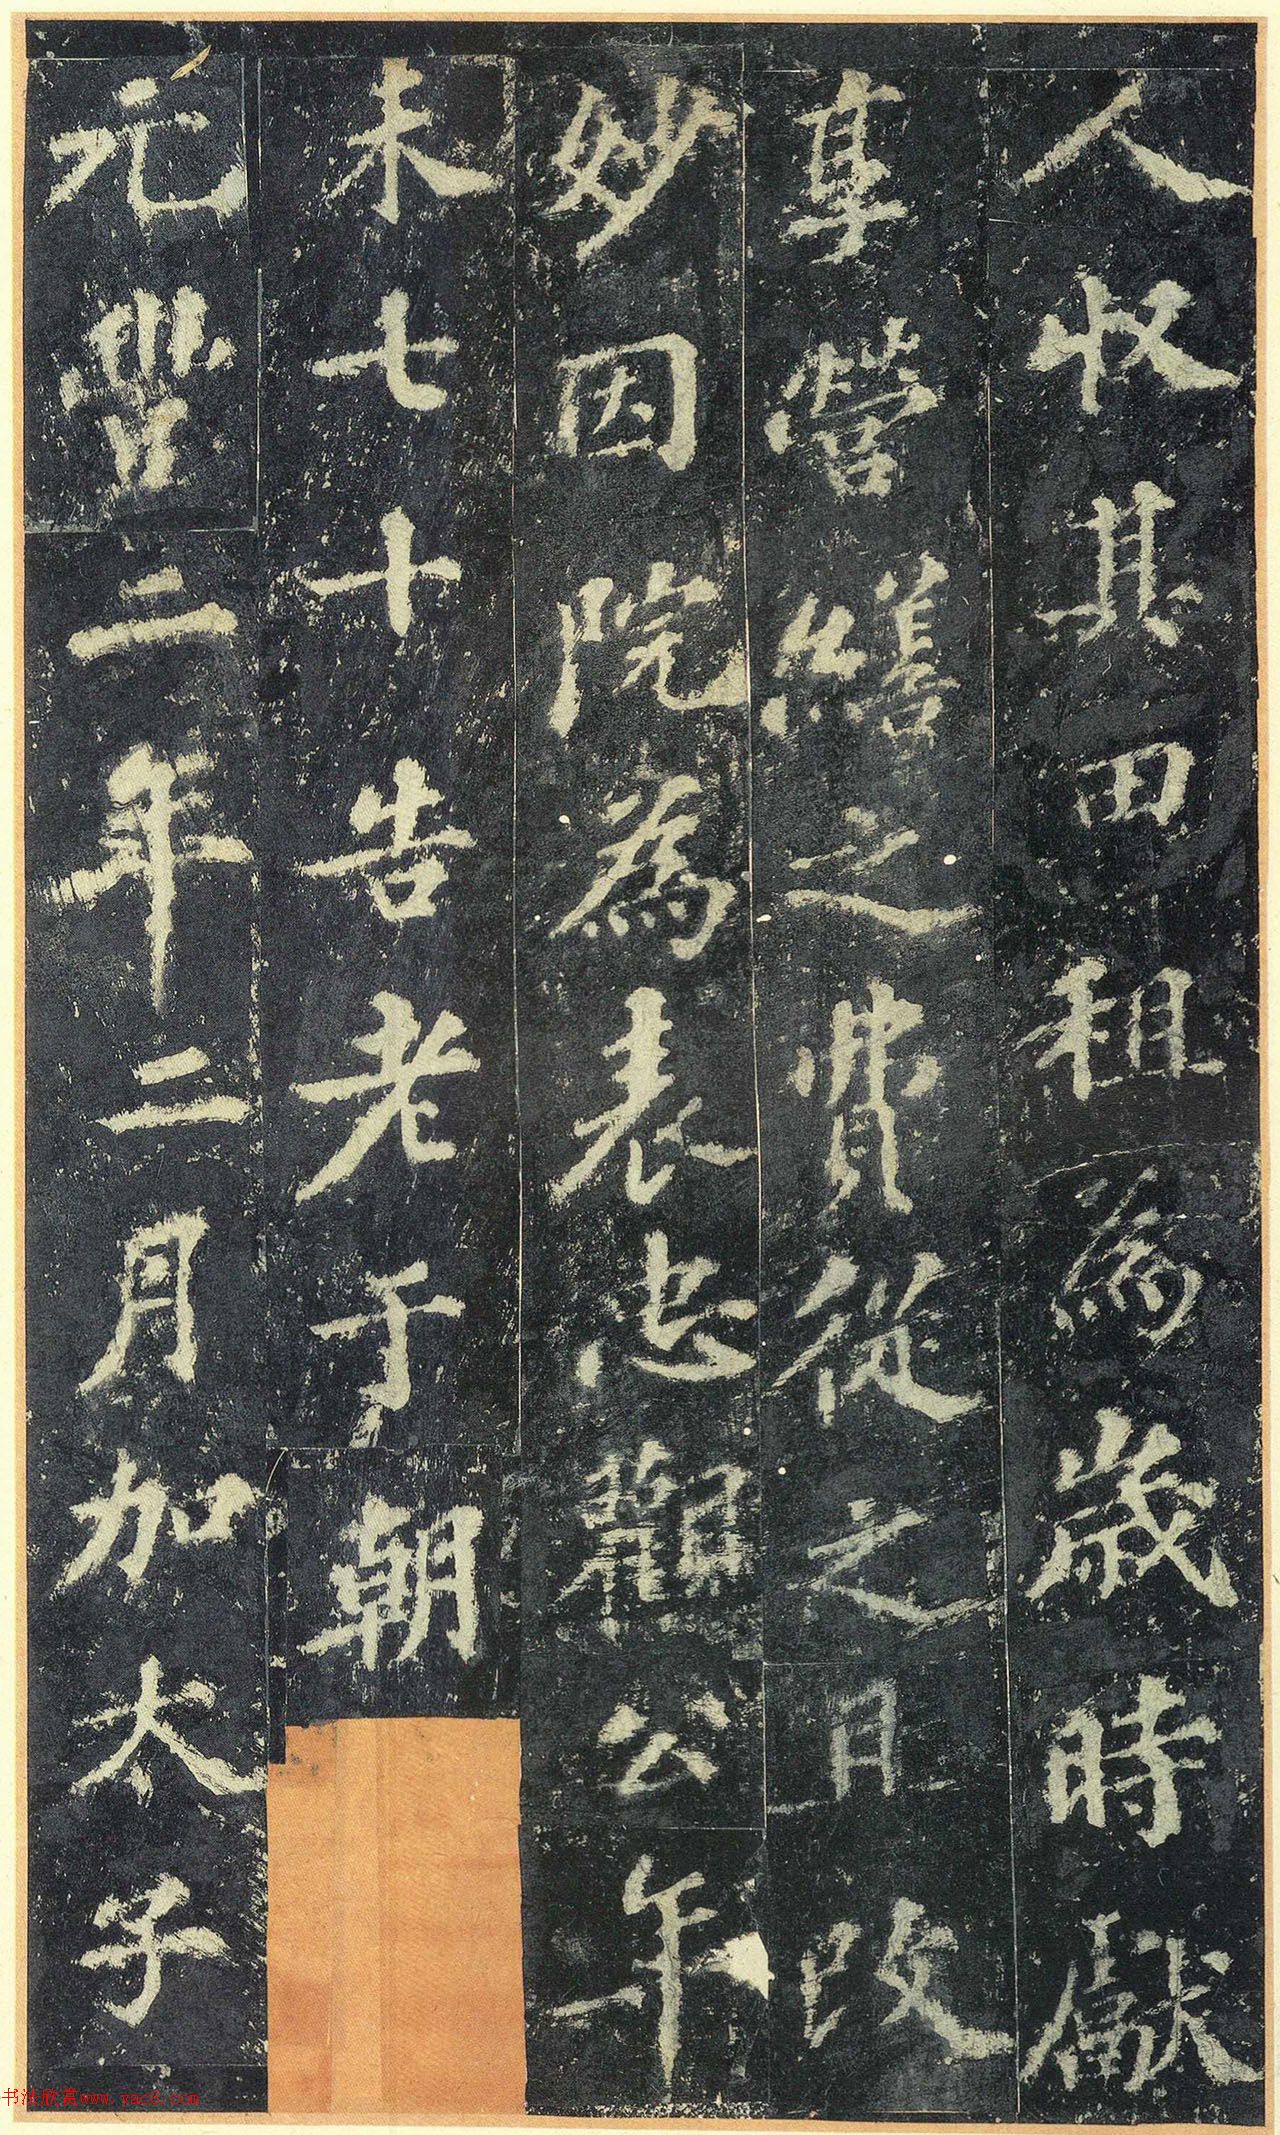 人收其田租為歲時獻
享營繕之費從之且改
妙因院為表忠觀公年
未七十告老于朝
元豐二年二月加太子
书法欣赏www.yac8.com